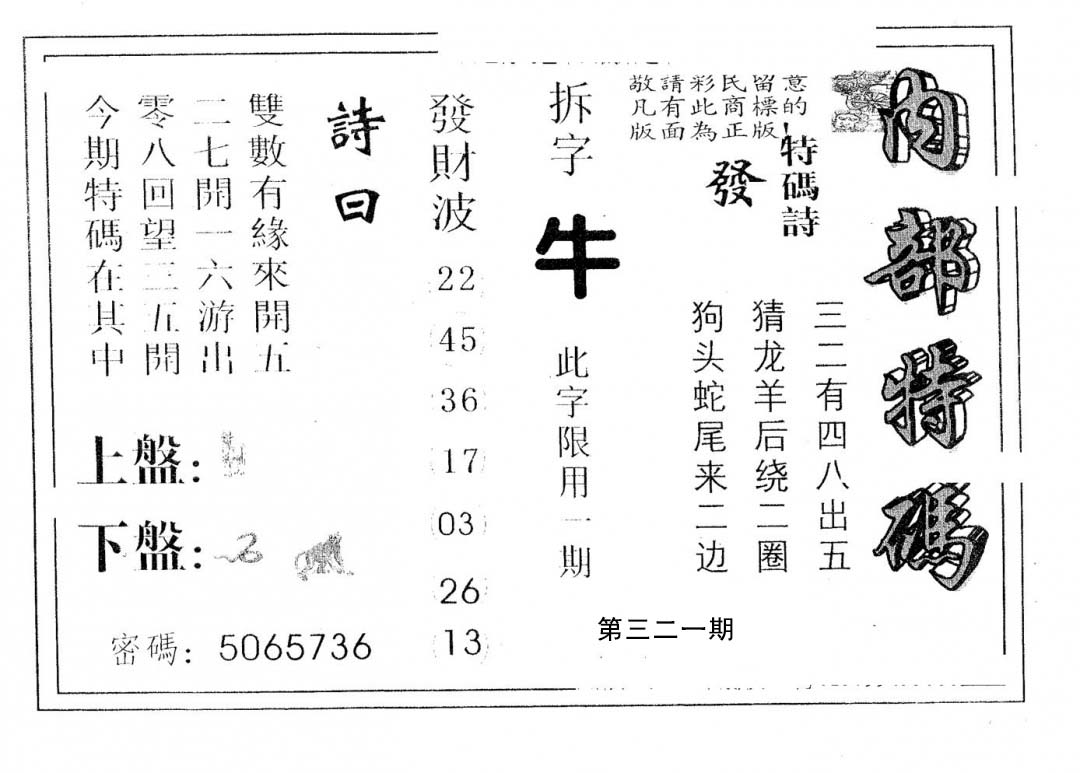 內部特碼
敬請彩民留意
凡有此商標的
版面為正版
特碼詩
發
三二有四八出五
猜龙羊后绕二圈
狗头蛇尾来二边
拆字
牛
此字限用一期
第三二一期
發財波
22
45
36
17
03
26
13
詩曰
雙數有緣來開五
二七開一六游出
零八回望三五開
今期特碼在其中
上盤:
下盤:
密碼: 5065736